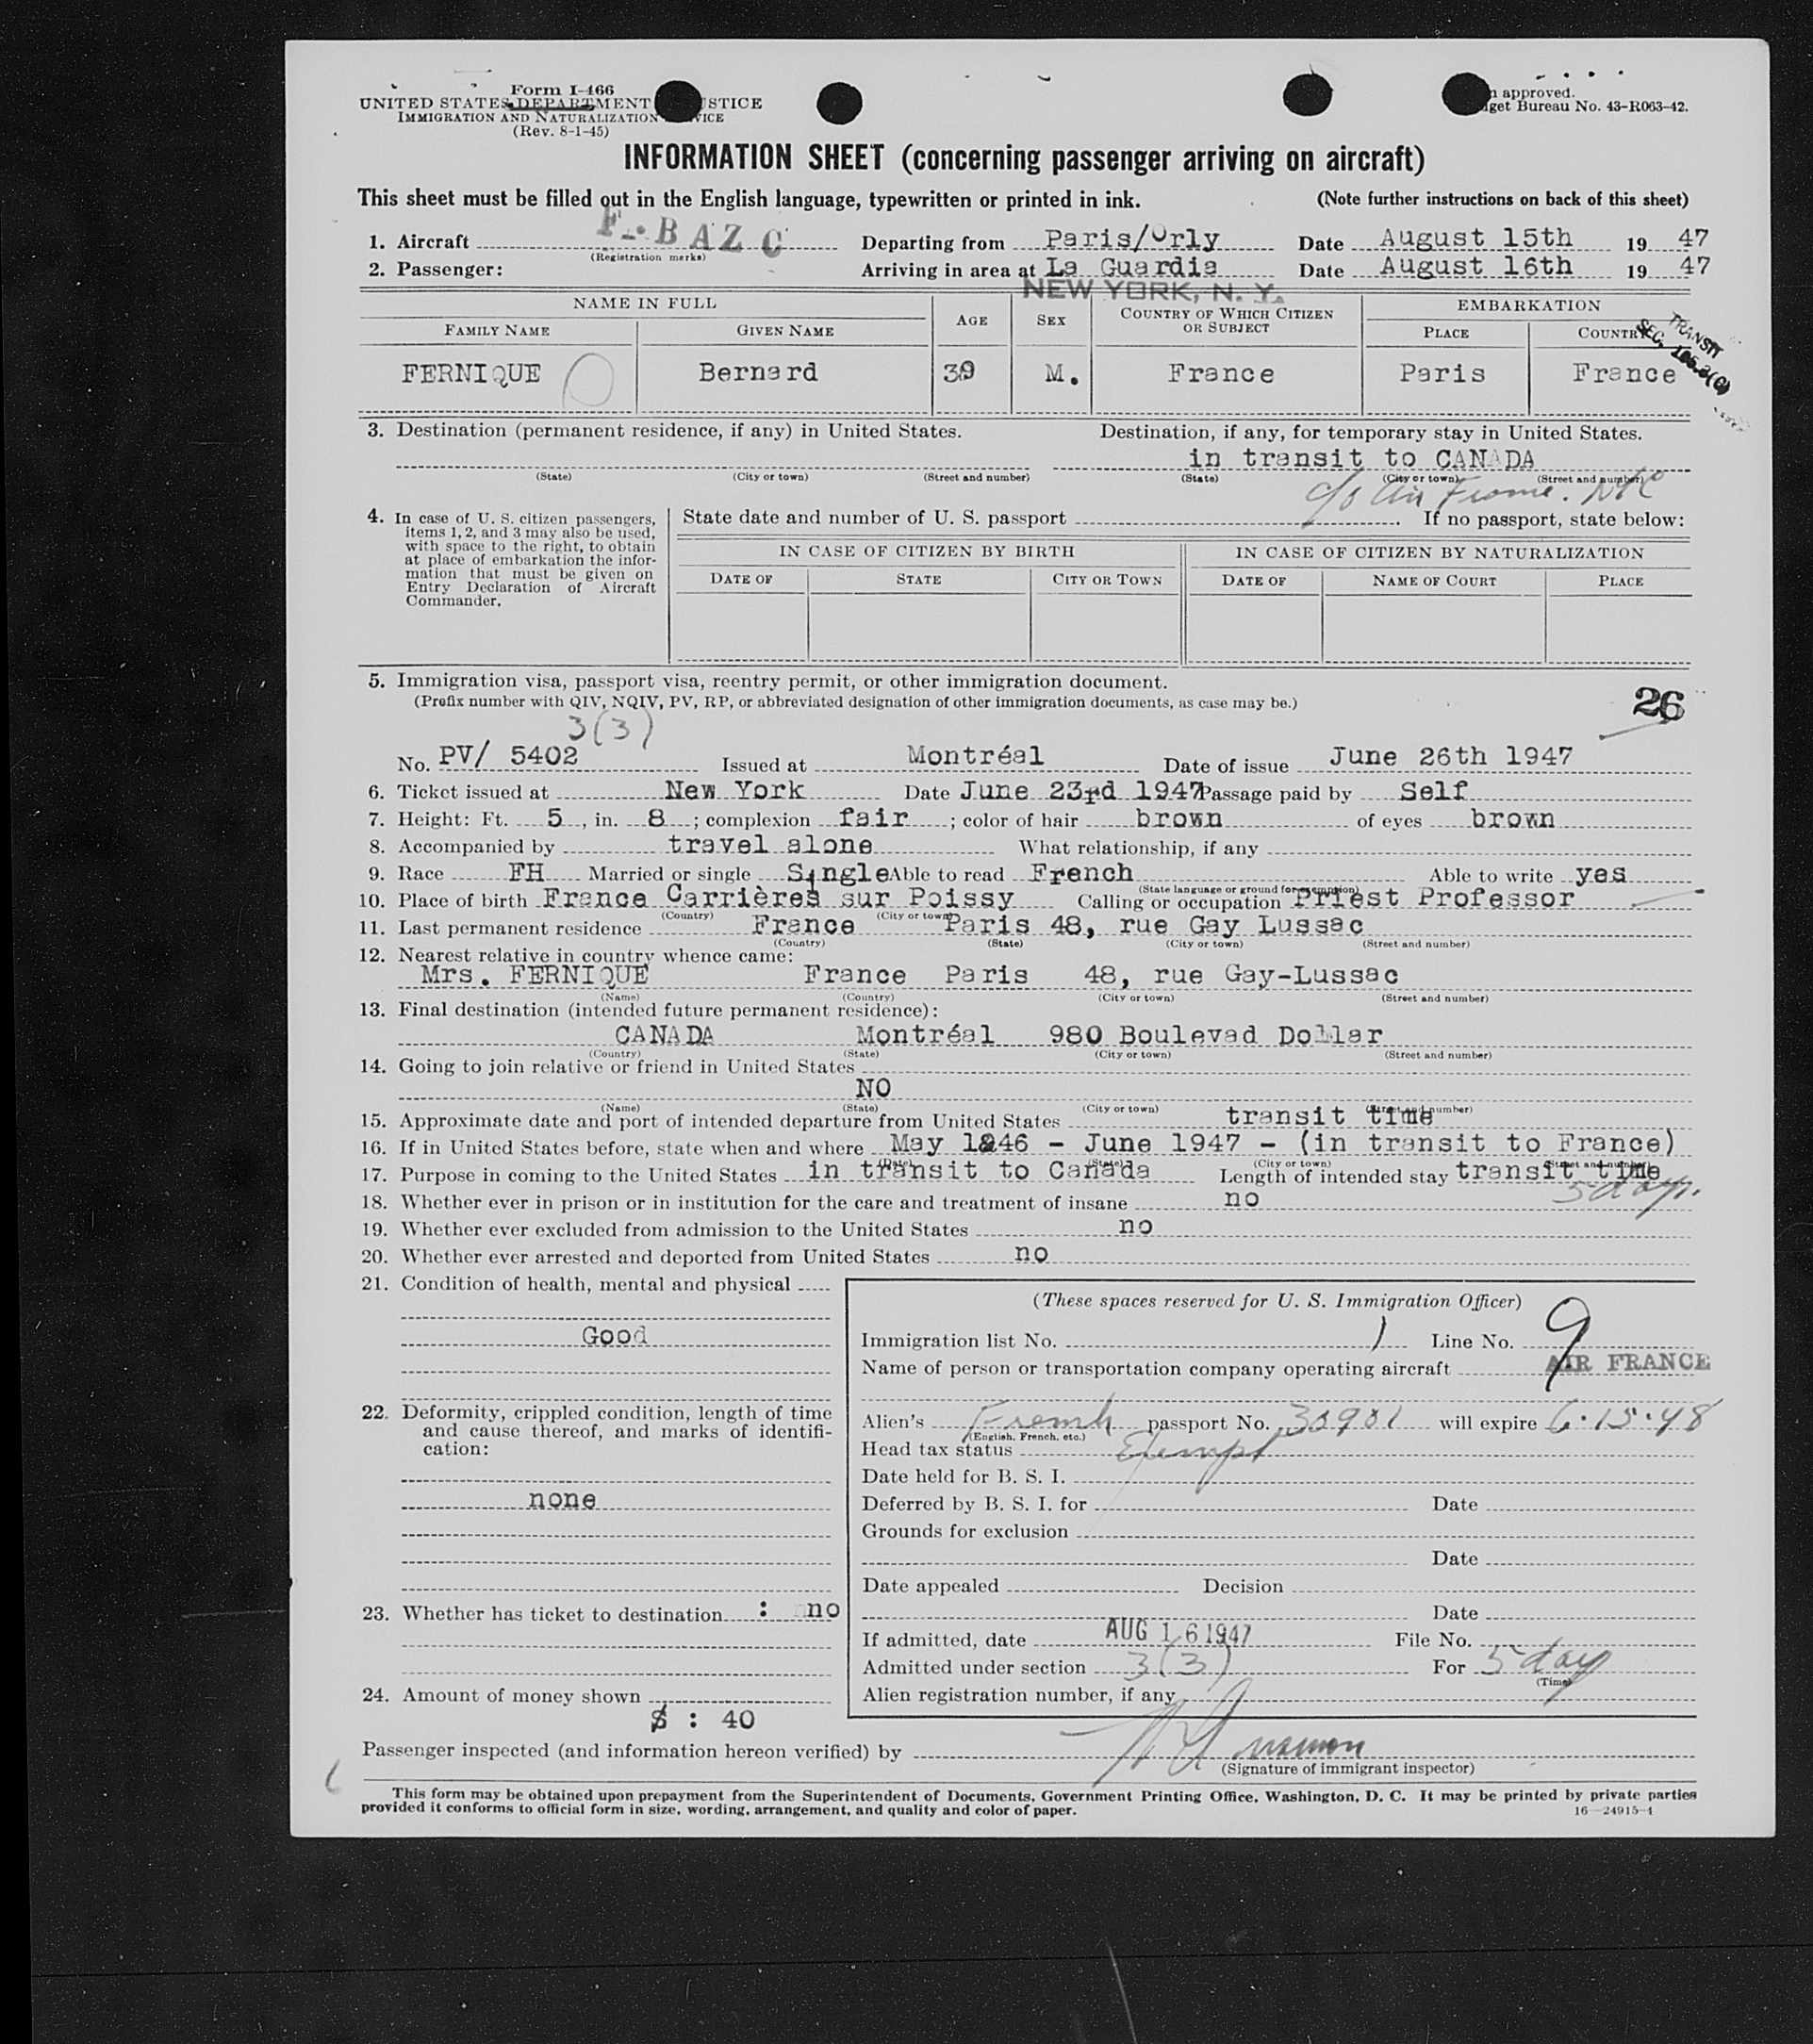 Form I-466
UNITED STATES DEPARTMENT STICE
IMMIGRATION AND NATURALIZATION VICE
(Rev. 8-1-45)
approved.
get Bureau No. 43-R063-42.
INFORMATION SHEET (concerning passenger arriving on aircraft)
This sheet must be filled out in the English language, typewritten or printed in ink. (Note further instructions on back of this sheet)
1. Aircraft F-BAZC Departing from Paris/Orly Date August 15th 1947
(Registration marks)
2. Passenger: Arriving in area at La Guardia Date August 16th 1947
NEW YORK, N. Y.
NAME IN FULL AGE SEX COUNTRY OF WHICH CITIZEN OR SUBJECT EMBARKATION
FAMILY NAME GIVEN NAME PLACE COUNTRY
TRANSIT
SEC.
FERNIQUE Bernard 39 M. France Paris France
3. Destination (permanent residence, if any) in United States. Destination, if any, for temporary stay in United States.
in transit to CANADA
(State) (City or town) (Street and number) (State) (City or town) (Street and number)
c/o Air France. NYC
4. In case of U. S. citizen passengers, items 1, 2, and 3 may also be used, with space to the right, to obtain at place of embarkation the information that must be given on Entry Declaration of Aircraft Commander.
State date and number of U. S. passport . If no passport, state below:
IN CASE OF CITIZEN BY BIRTH IN CASE OF CITIZEN BY NATURALIZATION
DATE OF STATE CITY OR TOWN DATE OF NAME OF COURT PLACE
5. Immigration visa, passport visa, reentry permit, or other immigration document.
(Prefix number with QIV, NQIV, PV, RP, or abbreviated designation of other immigration documents, as case may be.)
26
3(3)
No. PV/ 5402 Issued at Montréal Date of issue June 26th 1947
6. Ticket issued at New York Date June 23rd 1947 Passage paid by Self
7. Height: Ft. 5, in. 8; complexion fair; color of hair brown of eyes brown
8. Accompanied by travel alone What relationship, if any
9. Race FH Married or single Single Able to read French Able to write yes
(State language or ground for exemption)
10. Place of birth France Carrières sur Poissy Calling or occupation Priest Professor
(Country) (City or town)
11. Last permanent residence France Paris 48, rue Gay Lussac
(Country) (State) (City or town) (Street and number)
12. Nearest relative in country whence came:
Mrs. FERNIQUE France Paris 48, rue Gay-Lussac
(Name) (Country) (City or town) (Street and number)
13. Final destination (intended future permanent residence):
CANADA Montréal 980 Boulevad Dollar
(Country) (State) (City or town) (Street and number)
14. Going to join relative or friend in United States
NO
(Name) (State) (City or town) (Street and number)
15. Approximate date and port of intended departure from United States transit time
16. If in United States before, state when and where May 1946 - June 1947 - (in transit to France)
(Date) (State) (City or town) (Street and number)
17. Purpose in coming to the United States in transit to Canada Length of intended stay transit time
5 days.
18. Whether ever in prison or in institution for the care and treatment of insane no
19. Whether ever excluded from admission to the United States no
20. Whether ever arrested and deported from United States no
21. Condition of health, mental and physical
Good
22. Deformity, crippled condition, length of time and cause thereof, and marks of identification:
none
23. Whether has ticket to destination : no
24. Amount of money shown
$ : 40
(These spaces reserved for U. S. Immigration Officer)
Immigration list No. 1 Line No. 9
Name of person or transportation company operating aircraft AIR FRANCE
Alien's French passport No. will expire 6.15.48
(English, French, etc.)
Head tax status Exempt
Date held for B. S. I.
Deferred by B. S. I. for Date
Grounds for exclusion
Date
Date appealed Decision
Date
If admitted, date AUG 16 1947 File No.
Admitted under section 3(3) For 5 day
(Time)
Alien registration number, if any
Passenger inspected (and information hereon verified) by
(Signature of immigrant inspector)
This form may be obtained upon prepayment from the Superintendent of Documents, Government Printing Office, Washington, D. C. It may be printed by private parties
provided it conforms to official form in size, wording, arrangement, and quality and color of paper. 16—24915-1